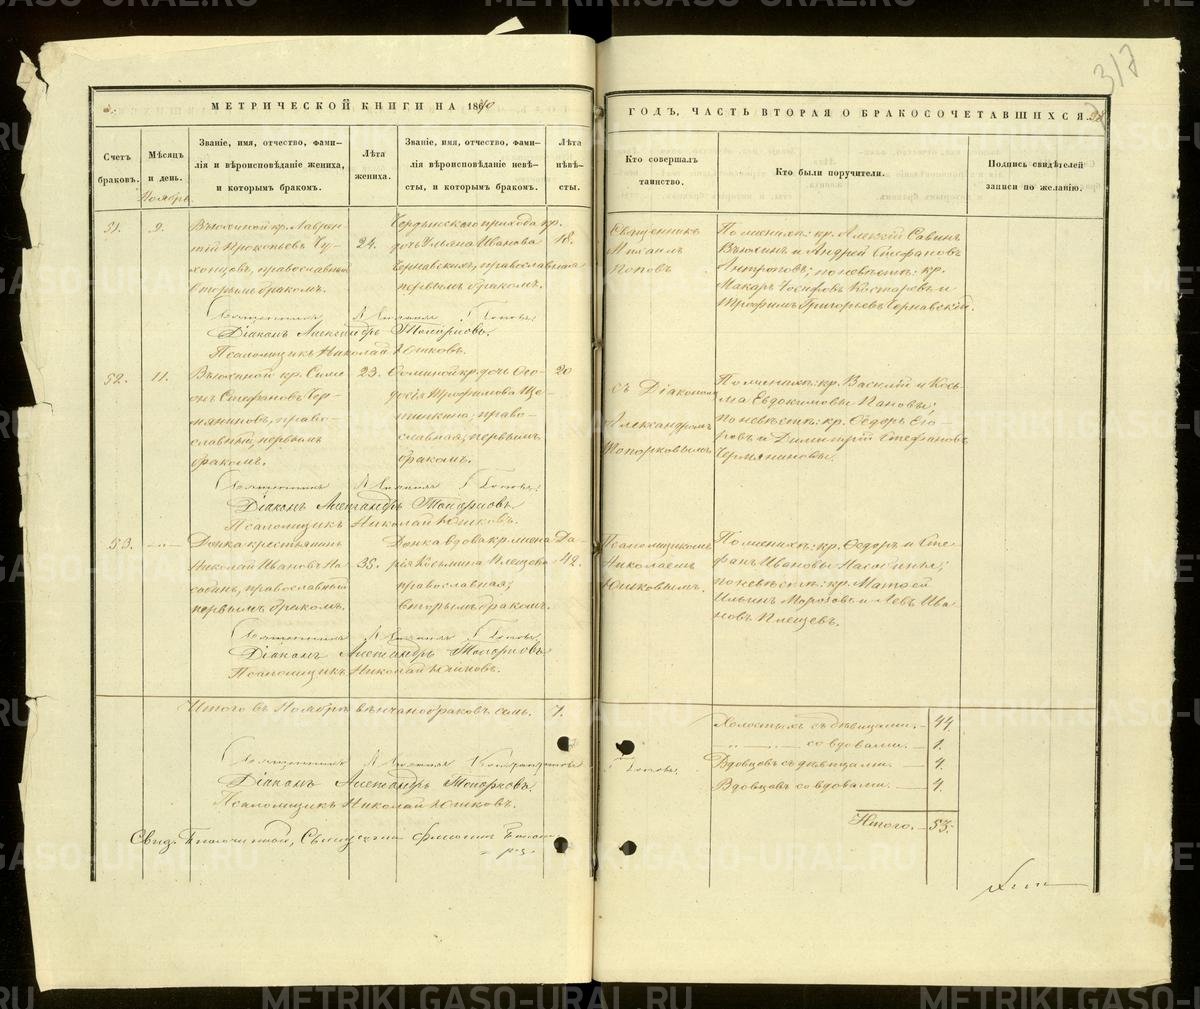 317
МЕТРИЧЕСКОЙ КНИГИ НА 1860
ГОДЪ, ЧАСТЬ ВТОРАЯ О БРАКОСОЧЕТАВШИХСЯ.
Счетъ
браковъ.
Мѣсяцъ
и день.
Званіе, имя, отчество, фами-
лія и вѣроисповѣданіе жениха,
и которымъ бракомъ.
Лѣта
жениха.
Званіе, имя, отчество, фами-
лія вѣроисповѣданіе невѣ-
сты, и которымъ бракомъ.
Лѣта
невѣ-
сты.
Кто совершалъ
таинство.
Кто были поручители.
Подпись свидѣтелей
записи по желанію.
Ноябрь.
51.
9.
Вьюхиной кр. Лаврен-
тій Прокопьевъ Чу-
хонцовъ, православный
вторымъ бракомъ.
24.
прихода кр.
дочь Ульяна Иванова
Чернавскихъ, православная
первымъ бракомъ.
18.
Священникъ
Михаилъ
Поповъ
По женихѣ: кр. Алексѣй Савинъ
Вьюхинъ и Андрей Стефановъ
Антроповъ; по невѣстѣ: кр.
Макаръ Іосифовъ Костаровъ и
Трофимъ Григорьевъ Чернавскій.
Священникъ Михаилъ Поповъ
Діаконъ Александръ Топорковъ.
Псаломщикъ Николай Юшковъ.
52.
11.
Вьюхиной кр. Симе
онъ Стефановъ Чер-
мяниновъ, право-
славный, первымъ
бракомъ.
23.
Фоминой кр. дочь Ѳео-
досія Трофимова Ще-
тинкина; право-
славная, первымъ
бракомъ.
20
съ Діакономъ
Александромъ
Топорковымъ
По женихѣ: кр. Василій и Кось-
ма Евдокимовы Пановы;
по невѣстѣ: кр. Ѳедоръ Его-
ровъ и Димитрій Стефановъ
Чермяниновы.
Священникъ Михаилъ Поповъ.
Діаконъ Александръ Топорковъ
Псаломщикъ Николай Юшковъ.
53.
— „ —
крестьянинъ
Николай Ивановъ На-
собинъ, православный
первымъ бракомъ.
35.
вдова кр. жена Да-
рія Косьмина Плещева
православная;
вторымъ бракомъ.
42.
Псаломщикомъ
Николаемъ
Юшковымъ.
По женихѣ: кр. Ѳедоръ и Сте-
фанъ Ивановы Насобины;
по невѣстѣ: кр. Матѳей
Ильинъ Морозовъ и Левъ Ива
новъ Плещевъ.
Священникъ Михаилъ Поповъ.
Діаконъ Александръ Топорковъ
Псаломщикъ Николай Юшковъ.
Итого въ Ноябрѣ вѣнчано браковъ семь. 7.
Холостыхъ съ дѣвицами. — 44.
„ — „ — со вдовами. — 1.
Вдовцовъ съ дѣвицами. — 4.
Вдовцовъ со вдовами. — 4.
Итого. — 53.
Священникъ Михаилъ
Поповъ.
Діаконъ Александръ Топорковъ.
Псаломщикъ Николай Юшковъ.
METRIKI.GASO-URAL.RU